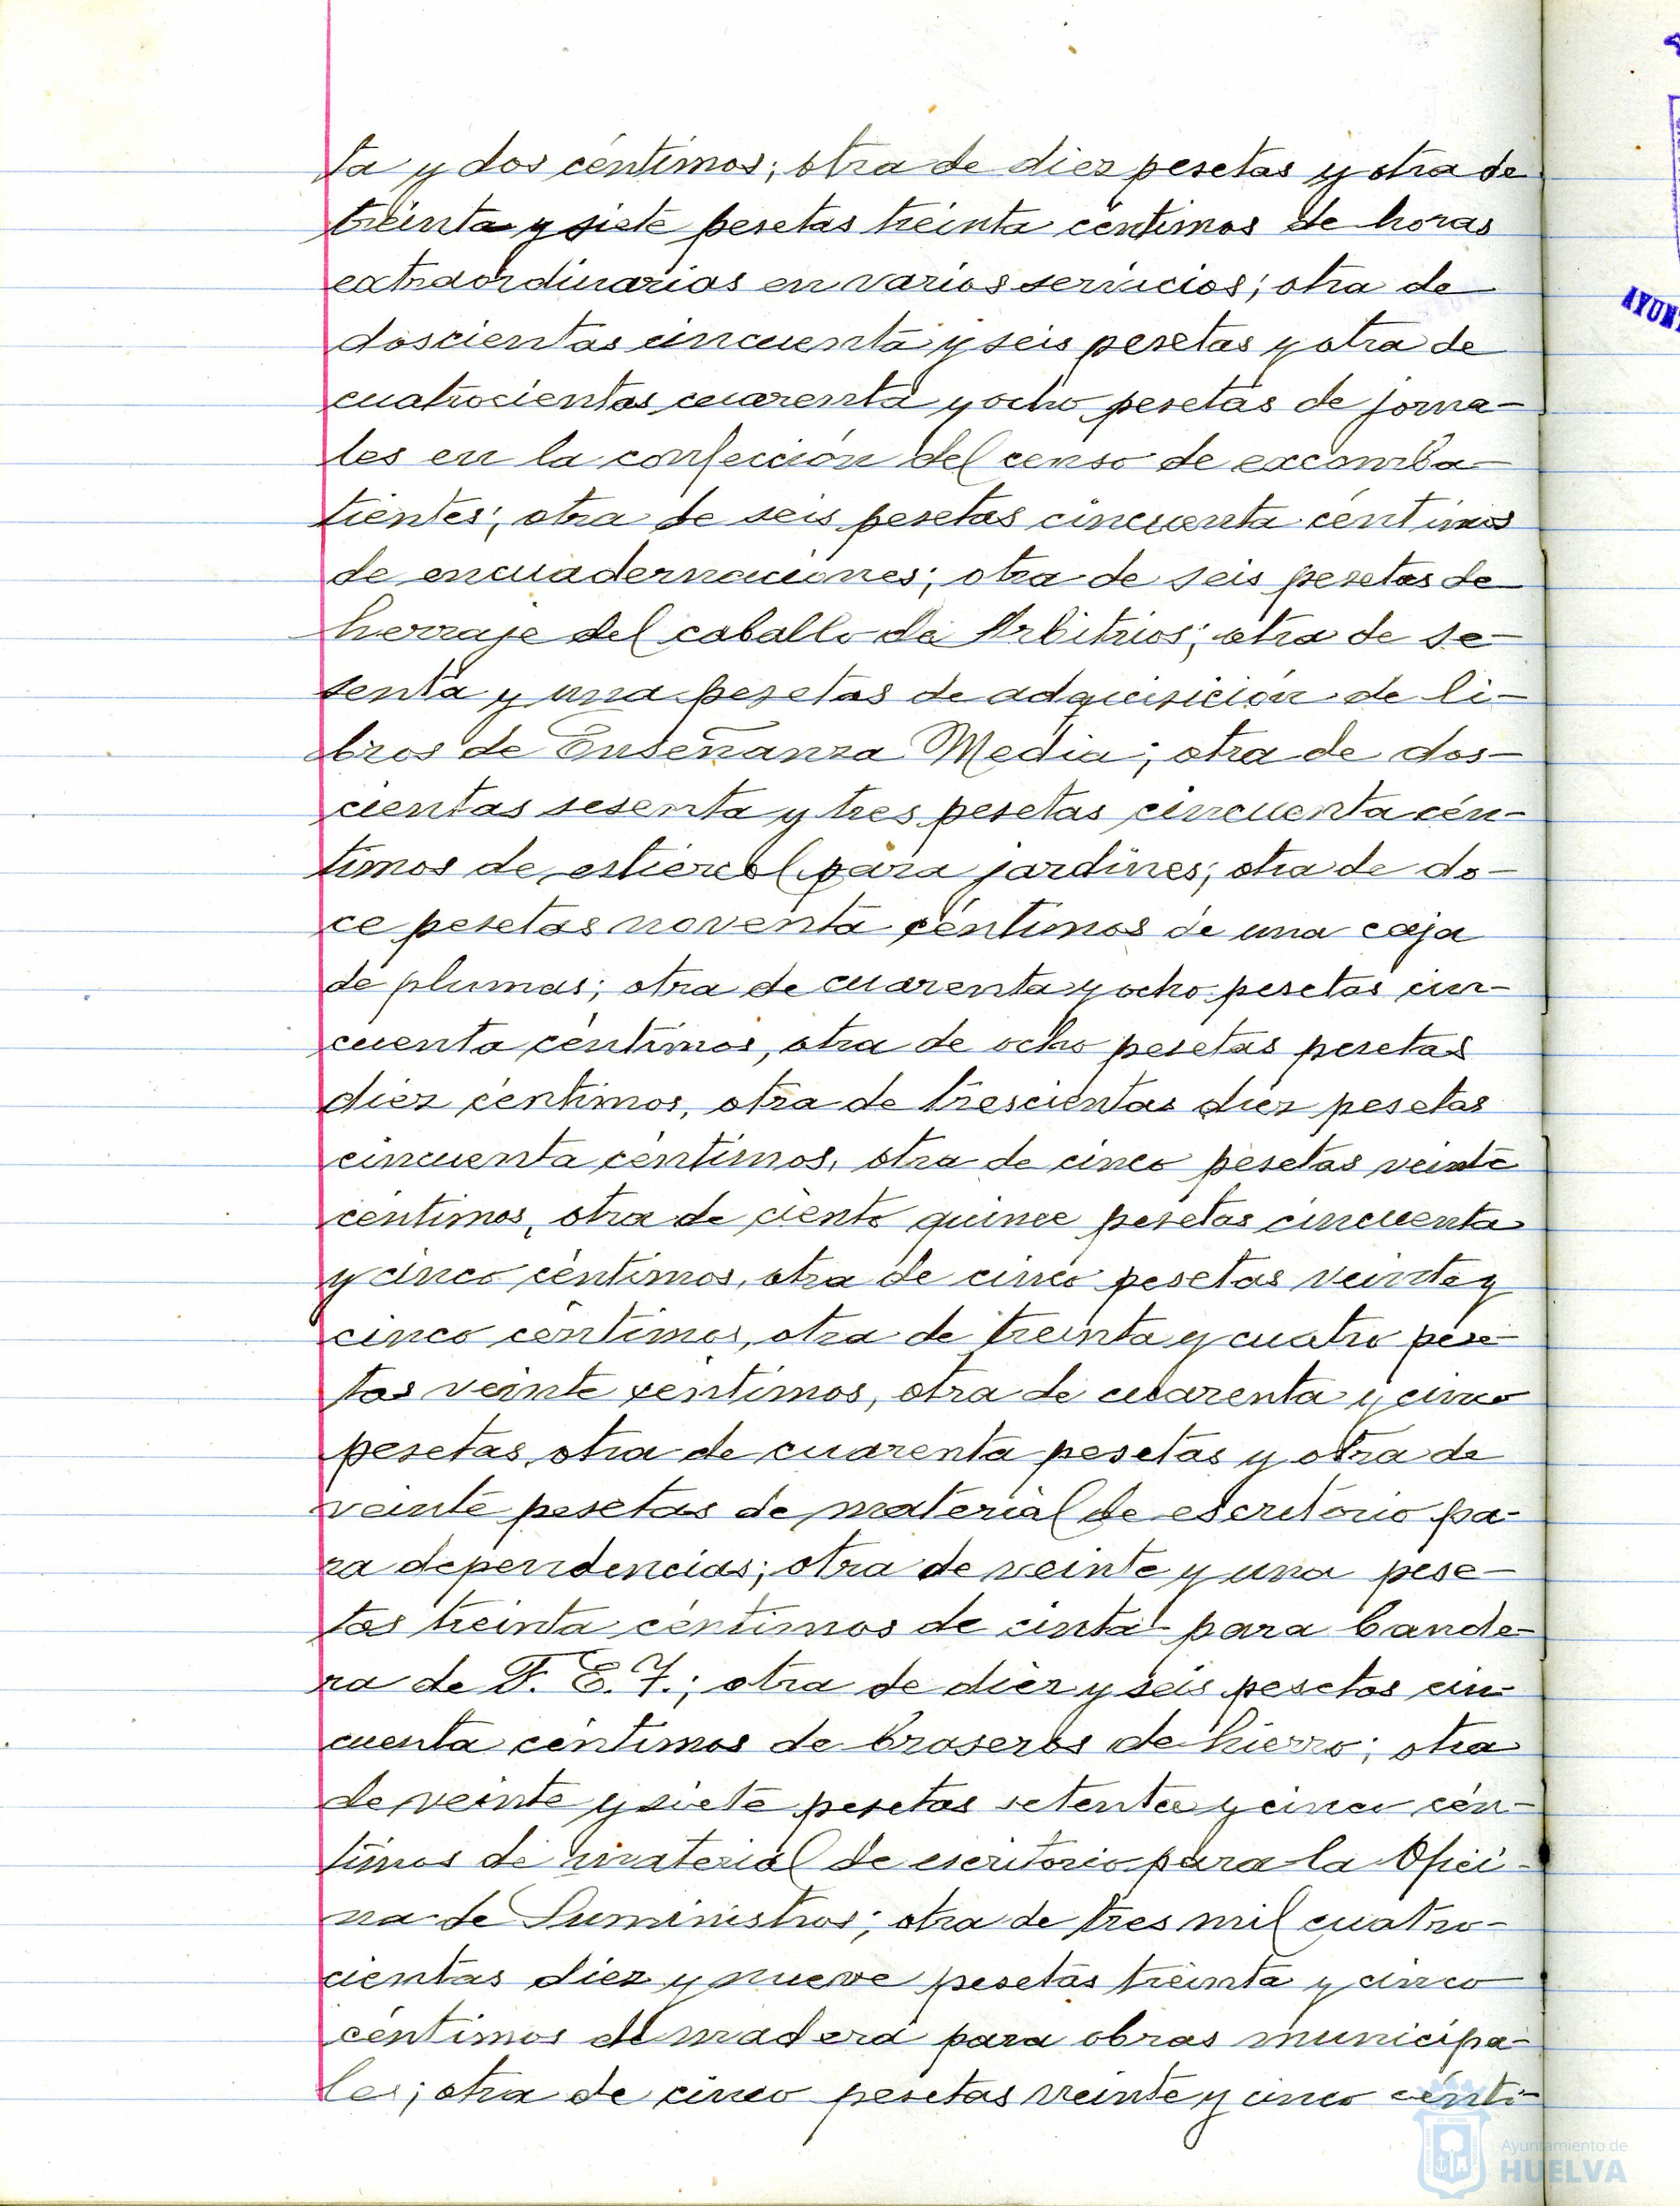 ta y dos céntimos; otra de diez pesetas y otra de
treinta y siete pesetas treinta céntimos de horas
extraordinarias en varios servicios; otra de
doscientas cincuenta y seis pesetas y otra de
cuatrocientas cuarenta y ocho pesetas de jorna-
les en la confección del censo de excomba-
tientes; otra de seis pesetas cincuenta céntimos
de encuadernaciones; otra de seis pesetas de
herraje del caballo de Arbitrios; otra de se-
senta y una pesetas de adquisición de li-
bros de Enseñanza Media; otra de dos-
cientas sesenta y tres pesetas cincuenta cén-
timos de estiércol para jardines; otra de do-
ce pesetas noventa céntimos de una caja
de plumas; otra de cuarenta y ocho pesetas cin-
cuenta céntimos, otra de ocho pesetas pesetas
diez céntimos, otra de trescientas diez pesetas
cincuenta céntimos, otra de cinco pesetas veinte
céntimos, otra de ciento quince pesetas cincuenta
y cinco céntimos, otra de cinco pesetas veinte y
cinco céntimos, otra de treinta y cuatro pese-
tas veinte céntimos, otra de cuarenta y cinco
pesetas, otra de cuarenta pesetas y otra de
veinte pesetas de material de escritorio pa-
ra dependencias; otra de veinte y una pese-
tas treinta céntimos de cinta para bande-
ra de F. E. T.; otra de diez y seis pesetas cin-
cuenta céntimos de braseros de hierro; otra
de veinte y siete pesetas setenta y cinco cén-
timos de material de escritorio para la Ofici-
na de Suministros; otra de tres mil cuatro-
cientas diez y nueve pesetas treinta y cinco
céntimos de madera para obras municipa-
les; otra de cinco pesetas veinte y cinco cénti-
AYUN
Ayuntamiento de
HUELVA